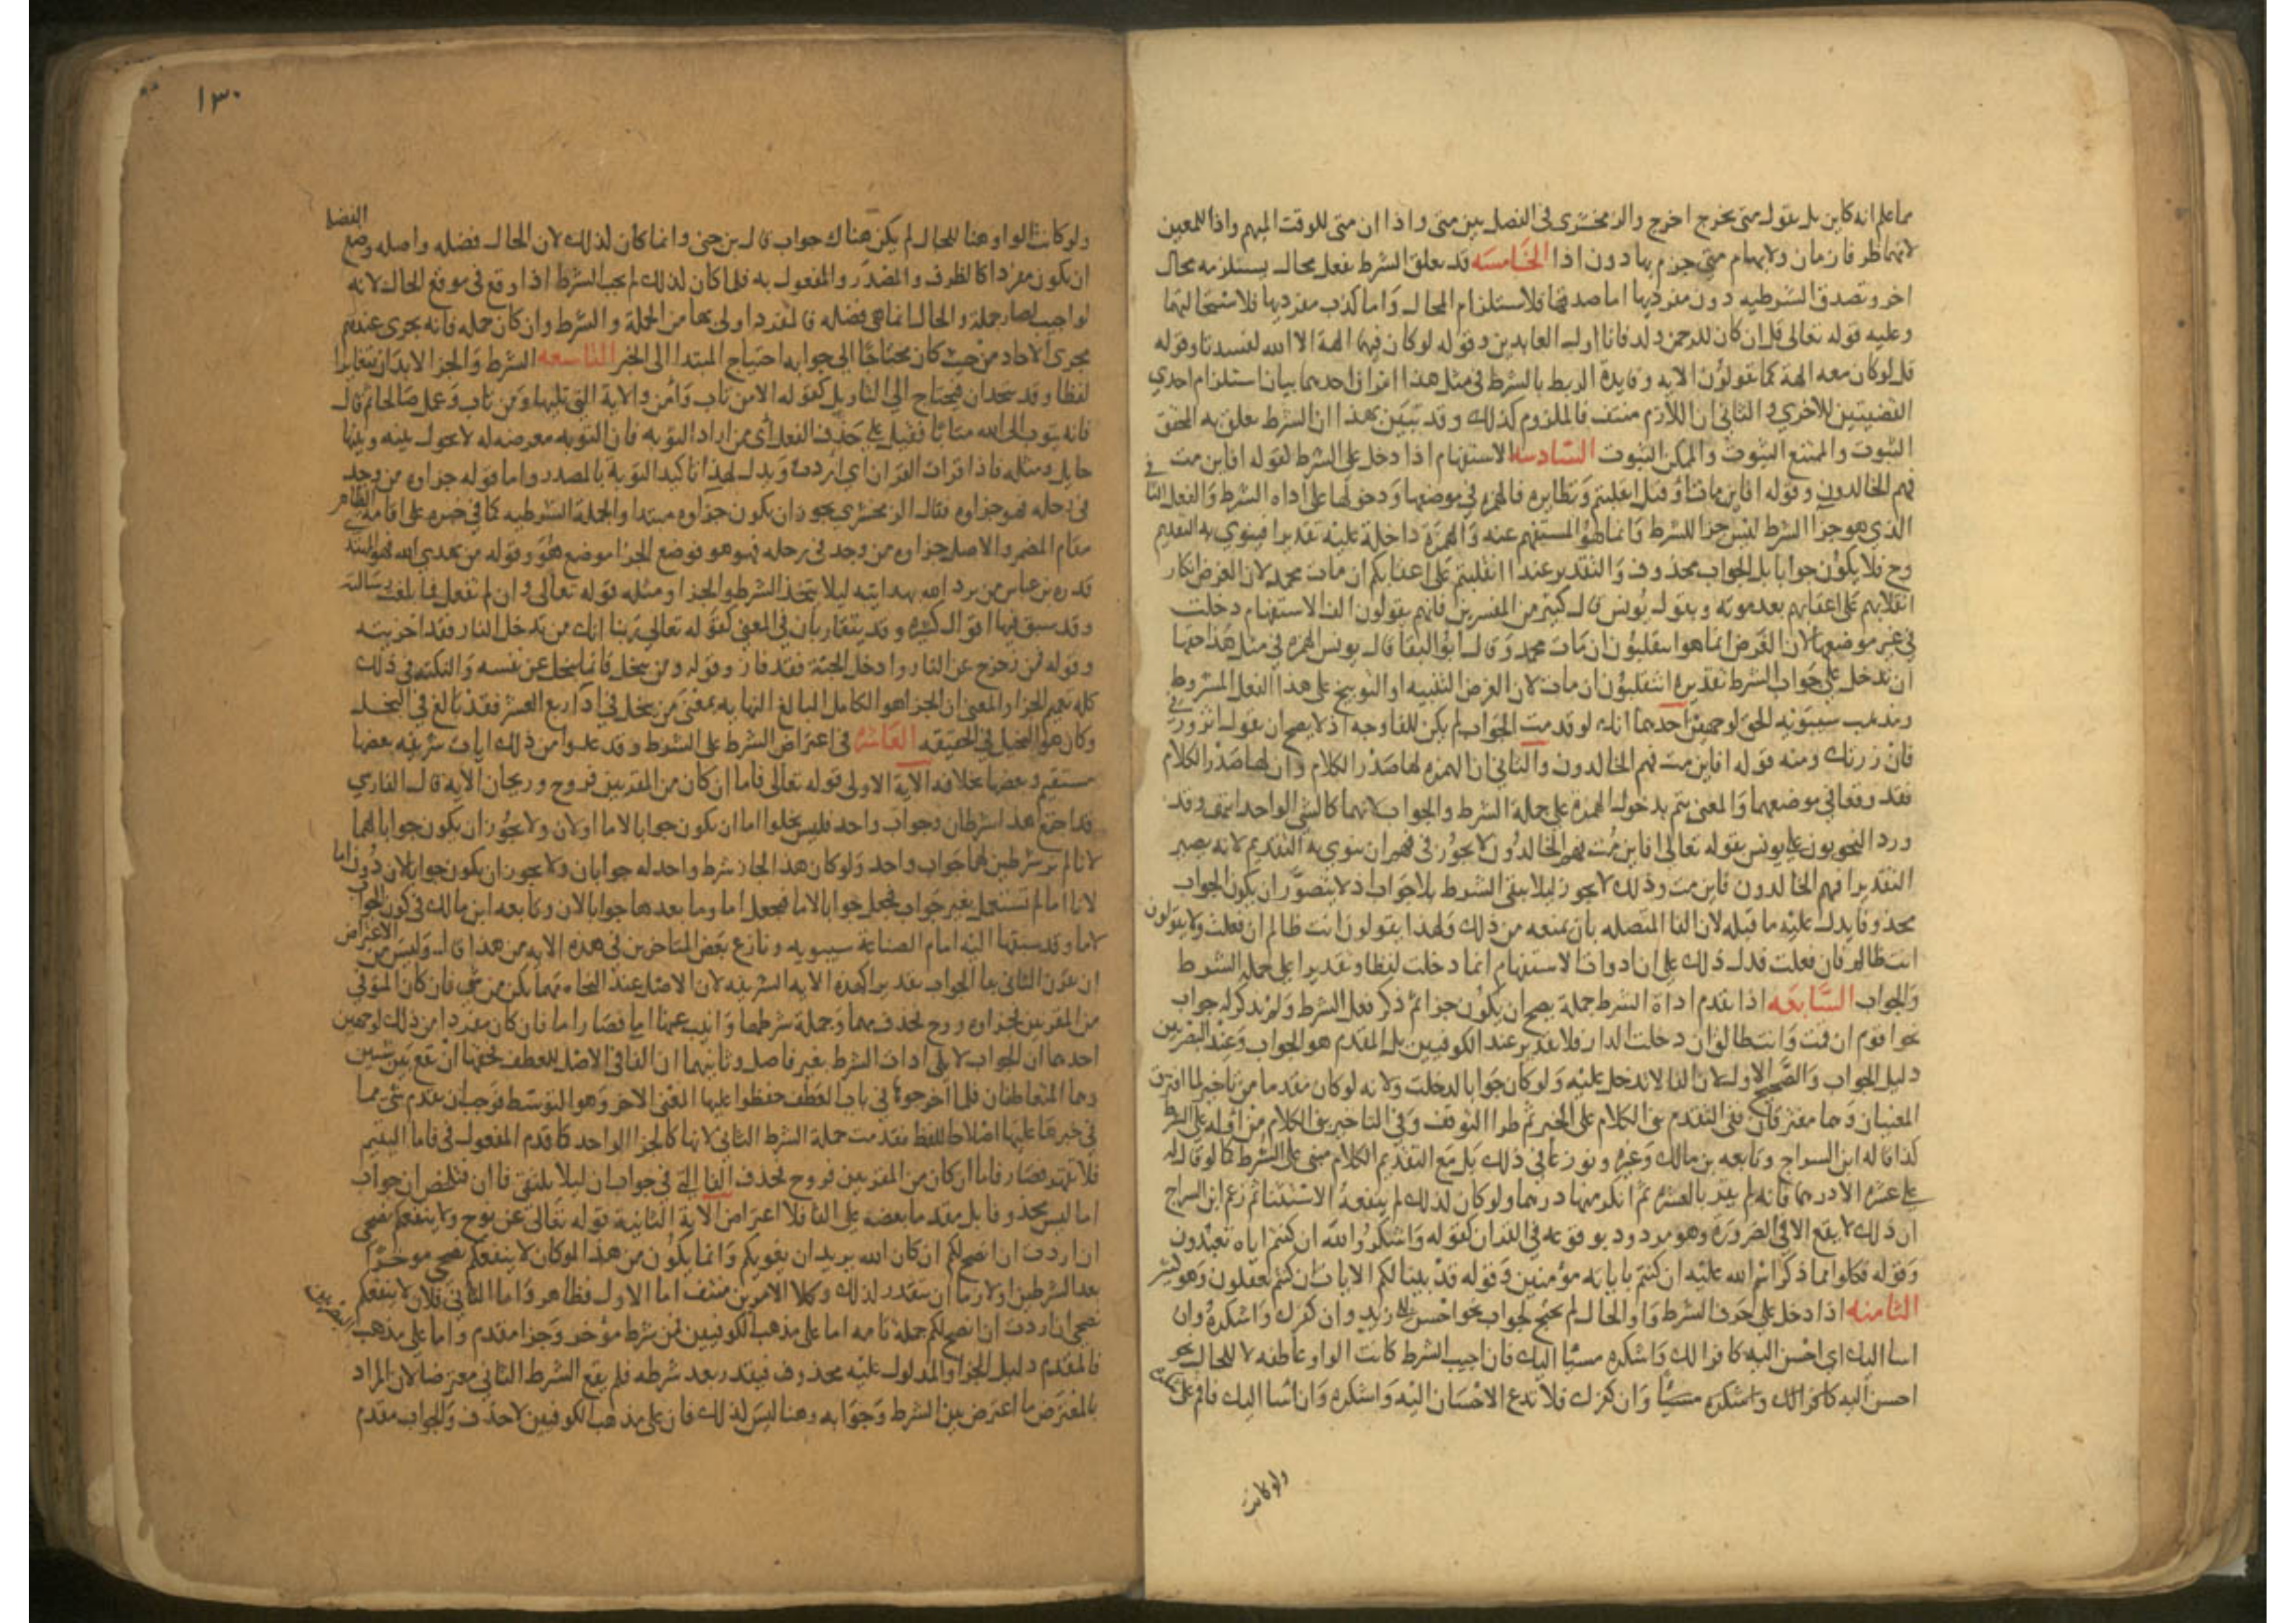 مما علم انه كاين بل يقول متى يخرج اخرج والزمخشرى فى الفصل بين متى واذا ان متى للوقت المبهم واذا للمعين
لانهما ظرفا زمان ولابهام متى جزم بها دون اذا الخامسه قد يعلق الشرط بفعل محال يستلزمه محال
اخر وتصدق الشرطيه دون مفرديها اما صدقها فلاستلزام المحال واما كذب مفرديها فلاستحالتهما
وعليه قوله تعالى قل ان كان للرحمن ولد فانا اول العابدين وقوله لو كان فيهما الهة الا الله لفسدتا وقوله
قل لو كان معه الهة كما تقولون الايه وفايدة الربط بالشرط فى مثل هذا امران احدهما بيان استلزام احدى
القضيتين للاخرى والثانى ان اللازم منتف فالملزوم كذلك وقد تبين بهذا ان الشرط يعلق به المحقق
الثبوت والممتنع الثبوت والممكن الثبوت السادسه الاستفهام اذا دخل على الشرط كقوله افاين مت
فهم الخالدون وقوله افاين مات او قتل انقلبتم ونظايره فالهمزه فى موضعها ودخولها على اداه الشرط والفعل الثانى
الذى هو جزا الشرط ليس جزا للشرط وانما هو المستفهم عنه والهمزة داخلة عليه تقديرا فينوى به التقديم
وح فلا يكون جوابا بل الجواب محذوف والتقدير عنده اانقلبتم على اعقابكم ان مات محمد لان الغرض انكار
انقلابهم على اعقابهم بعد موته ويقول يونس قال كثير من المفسرين فانهم يقولون الف الاستفهام دخلت
فى غير موضعها لان الغرض انما هو اتنقلبون ان مات محمد وقال ابو البقا قال يونس الهمزه فى مثل هذا حقها
ان تدخل على جواب الشرط تقديره اتنقلبون ان مات لان الغرض التنبيه او التوبيخ على هذا الفعل المشروط
ومذهب سيبويه الحق لوجهين احدهما انك لو قدمت الجواب لم يكن للفا وجه اذ لا يصح ان يقول اتزورنى
فان زرتك ومنه قوله افاين مت فهم الخالدون والثانى ان الهمزه لها صدر الكلام وان لها صدر الكلام
فقد وقعا فى موضعهما والمعنى يتم بدخول الهمزة على جملة الشرط والجواب لانهما كالشى الواحد انتهى وقد
ورد النحويون على يونس بقوله تعالى افاين مت فهم الخالدون لا يجوز فى فهم ان ينوى به التقديم لانه يصير
التقدير افهم الخالدون فاين مت وذلك لا يجوز ليلا يبقى الشرط بلا جواب اذ لا يتصور ان يكون الجواب
محذوفا يدل عليه ما قبله لان الفا المتصله بان يمنعه من ذلك ولهذا يقولون انت ظالم ان فعلت ولا يقولون
انت ظالم فان فعلت فدل ذلك على ان ادوات الاستفهام انما دخلت لفظا وتقديرا على جملة الشرط
والجواب السابعه اذا تقدم اداة الشرط جملة يصح ان يكون جزا ثم ذكر فعل الشرط ولم يذكر له جواب
نحو اقوم ان قمت وانت طالق ان دخلت الدار فلا تقدير عند الكوفيين بل المقدم هو الجواب وعند البصريين
دليل الجواب والصحيح الاول لان الفا لا تدخل عليه ولو كان جوابا لدخلت ولانه لو كان مقدما من تاخير لما افترق
المعنيان وهما مفترقان ففى التقدم بنى الكلام على الخبر ثم طرا التوقف وفى التاخير بنى الكلام من اوله على الشرط
كذا قاله ابن السراج وتابعه بن مالك وغيره ونوزعا فى ذلك بل مع التقديم الكلام مبنى على الشرط كما لو قال له
على عشره الا درهما فانه لم يقر بالعشره ثم انكر منها درهما ولو كان لذلك لم ينفعه الاستثنا ثم زعم ابن السراج
ان ذلك لا يقع الا فى الضرورة وهو مردود بوقوعه فى القران كقوله واشكروا لله ان كنتم اياه تعبدون
وقوله فكلوا مما ذكر اسم الله عليه ان كنتم باياته مؤمنين وقوله قد بينا لكم الايات ان كنتم تعقلون وهو كثير
الثامنه اذا دخل على حرف الشرط واو الحال لم يحتج لجواب نحو احسن الى زيد وان كفرك واشكره وان
اسا اليك اى احسن اليه كافرا لك واشكره مسيا اليك فان اجيب الشرط كانت الواو عاطفه لا للحال نحو
احسن اليه كافرا لك واشكره مسيا وان كفرك فلا تدع الاحسان اليه واشكره وان اسا اليك فاقم على
ولو كانت
١٣٠
ولو كانت الواو هنا للحال لم يكن هناك جواب قال بن جنى وانما كان لذلك لان الحال فضله واصله وضع الفضل
ان يكون مفردا كالظرف والمصدر والمفعول به فلما كان لذلك لم يجب الشرط اذا وقع فى موقع الحال لانه
لو اجيب لصار جملة والحال انما هى فضله فالمفرد اولى بها من الجملة والشرط وان كان جمله فانه يجرى عندهم
مجرى الاحاد من حيث كان محتاجا الى جوابه احتياج المبتدا الى الخبر التاسعه الشرط والجزا لابد ان يتغايرا
لفظا وقد يتحدان فيحتاج الى التاويل كقوله الا من تاب وامن والاية التى تليها ومن تاب وعمل صالحا ثم قال
فانه يتوب الى الله متابا فقيل على حذف الفعل اى من اراد التوبه فان التوبه معرضه له لا يحول بينه وبينها
حايل ومثله فاذا قرات القران اى اردت ويدل لهذا تاكيد التوبة بالمصدر واما قوله جزاوه من وجد
فى رحله فهو جزاوه فقال الزمخشرى يجوز ان يكون جزاوه مبتدا والجملة الشرطيه كما فى خبره على اقامة الظاهر
مقام المضمر والاصل جزاوه من وجد فى رحله فهو هو فوضع الجزا موضع هو وقوله من يهدى الله فهو المهتد
قدره بن عباس من يرد الله هدايته ليلا يتحد الشرط والجزا ومثله قوله تعالى وان لم تفعل فما بلغت رسالته
وقد سبق فيها اقوال كثيره وقد يتقاربان فى المعنى كقوله تعالى ربنا انك من تدخل النار فقد اخزيته
وقوله فمن زحزح عن النار وادخل الجنة فقد فاز وقوله ومن يبخل فانما يبخل عن نفسه والنكته فى ذلك
كله تفخيم الجزا والمعنى ان الجزا هو الكامل البالغ النهايه بمعنى من يبخل فى ادا ربع العشر فقد بالغ فى البخل
وكان هو البخيل فى الحقيقه العاشره فى اعتراض الشرط على الشرط وقد عدوا من ذلك ايات شريفه بعضها
مستقيم وبعضها بخلافه الاية الاولى قوله تعالى فاما ان كان من المقربين فروح وريحان الاية قال الفارسى
قد اجتمع هنا شرطان وجواب واحد فليس يخلوا اما ان يكون جوابا لاما او لان ولا يجوز ان يكون جوابا لهما
لانا لم نر شرطين لهما جواب واحد ولو كان هذا لجاز شرط واحد له جوابان ولا يجوز ان يكون جوابا لان دون اما
لانا اما لم تستعمل بغير جواب فجعل جوابا لاما فجعل اما وما بعدها جوابا لان وتابعه ابن مالك فى كون الجواب
لاما وقد سبقهما اليه امام الصناعة سيبويه ونازع بعض المتاخرين فى هذه الايه من هذا قال وليس من الاعتراض
ان يقرن الثانى بفا الجواب تقديرا كهذه الايه الشريفه لان الاصل عند النحاه مهما يكن من شى فان كان المتوفى
من المقربين فجزاوه روح فحذف مهما وجملة شرطها وانيب عنها اما فصار اما فان كان مفردا من ذلك لوجهين
احدهما ان الجواب لا يلى ادات الشرط بغير فاصل وثانيهما ان الفا فى الاصل للعطف فحقها ان تقع بين شيين
وهما المتعاطفان فلما اخرجوها فى باب العطف حفظوا عليها المعنى الاخر وهو التوسط فوجب ان يقدم شى مما
فى خبرها عليها اصلاحا للفظ فقدمت جملة الشرط الثانى لانها كالجزا الواحد كما قدم المفعول فى فاما اليتيم
فلا تقهر فصار فاما ان كان من المقربين فروح فحذف الفا التى فى جواب ان ليلا يلتقى فاان فتلخص ان جواب
اما ليس محذوفا بل مقدما بعضه على الفا فلا اعتراض الاية الثانية قوله تعالى عن نوح ولا ينفعكم نصحى
ان اردت ان انصح لكم ان كان الله يريد ان يغويكم وانما يكون من هذا لو كان لا ينفعكم نصحى موخرا
بعد الشرطين او لازما ان يتقدر لذلك وكلا الامرين منتف اما الاول فظاهر واما الثانى فلان لا ينفعكم
نصحى ان اردت ان انصح لكم جملة تامه اما على مذهب الكوفيين فمن شرط موخر وجزا مقدم واما على مذهب البصريين
فالمقدم دليل الجزا والمدلول عليه محذوف فيقدر بعد شرطه فلم يقع الشرط الثانى معترضا لان المراد
بالمعترض ما اعترض بين الشرط وجوابه وهنا ليس لذلك فان على مذهب الكوفيين لا حذف والجواب مقدم